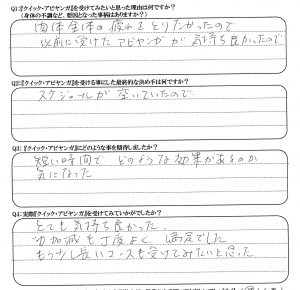 Q1:『クイック・アビヤンガ』を受けてみたいと思った理由は何ですか?
(身体の不調など、原因となった事柄はありますか?)
肉体全体の疲れをとりたかったので
以前に受けたアビヤンガが気持ち良かったので
Q2:『クイック・アビヤンガ』を受ける事にした最終的な決め手は何ですか?
スケジュールが空いていたので
Q3:『クイック・アビヤンガ』にどのような事を期待しましたか?
短い時間でどのような効果があるのか
気になった
Q4:実際『クイック・アビヤンガ』を受けてみていかがでしたか?
とても気持ち良かった。
力加減も丁度よく、満足でした
もう少し長いコースも受けてみたいと思った